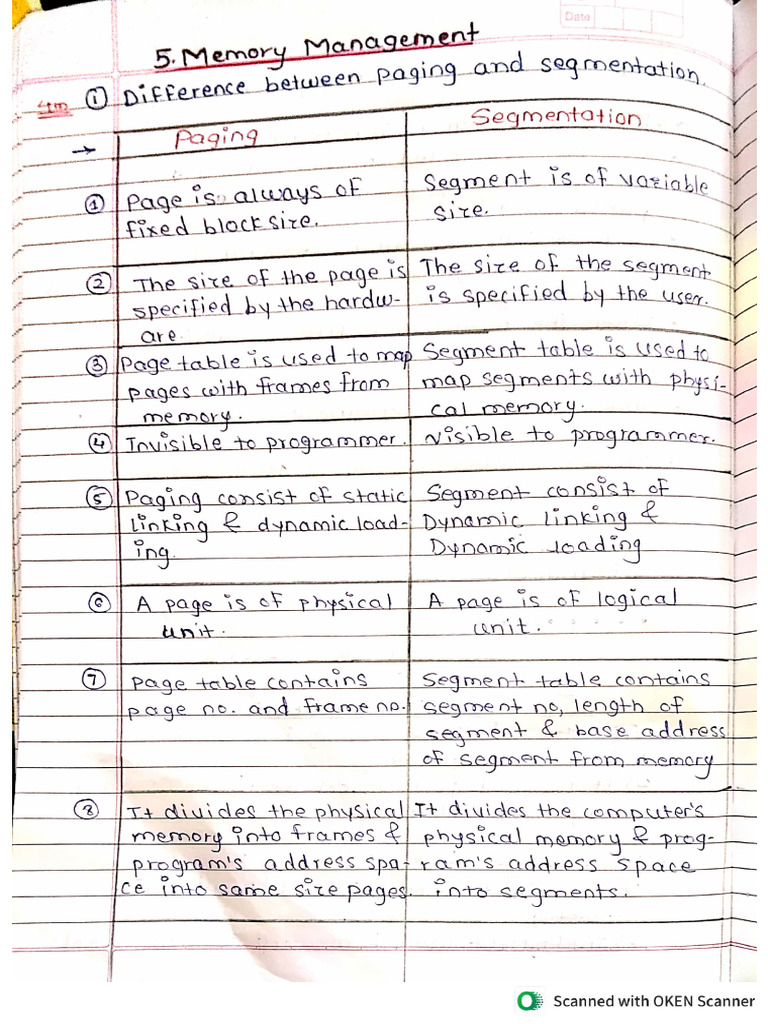 Date
5. Memory Management
4m ① Difference between paging and segmentation.
→ Paging
Segmentation
① Page is always of
fixed block size.
Segment is of variable
size.
② The size of the page is
specified by the hardw-
are.
The size of the segment
is specified by the user.
③ Page table is used to map
pages with frames from
memory.
Segment table is used to
map segments with physi-
cal memory.
④ Invisible to programmer.
visible to programmer.
⑤ Paging consist of static
linking & dynamic load-
ing.
Segment consist of
Dynamic linking &
Dynamic loading
⑥ A page is of physical
unit.
A page is of logical
unit.
⑦ Page table contains
page no. and frame no.
Segment table contains
segment no, length of
segment & base address
of segment from memory
⑧ It divides the physical
memory into frames &
program's address spa-
ce into same size pages.
It divides the computer's
physical memory & prog-
ram's address space
into segments.
Scanned with OKEN Scanner